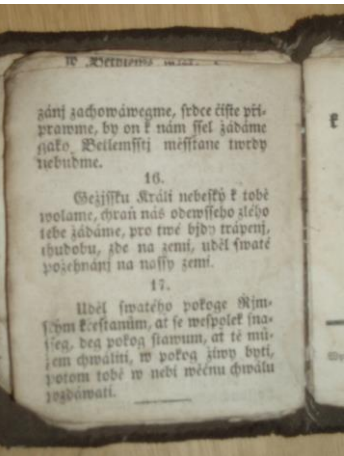 w Betlémě
zánj zachowáwegme, srdce čiste při-
prawme, by on k nám ssel žádáme
gako Betlemsstj měsstane twrdy
nebudme.
16.
Gežjssku Králi nebeský k tobě
wolame, chraň nás odewsseho zlého
tebe žádáme, pro twé bjdy trápenj,
chudobu, zde na zemi, uděl swaté
požehnánj na nassy zemi.
17.
Uděl swatého pokoge Řjm-
ským křestanům, at se wespolek sna-
sseg, deg pokog stawum, at té mů-
žem chwáliti, w pokog žiwy byti,
potom tobě w nebi wěčnu chwálu
wzdáwati.
k